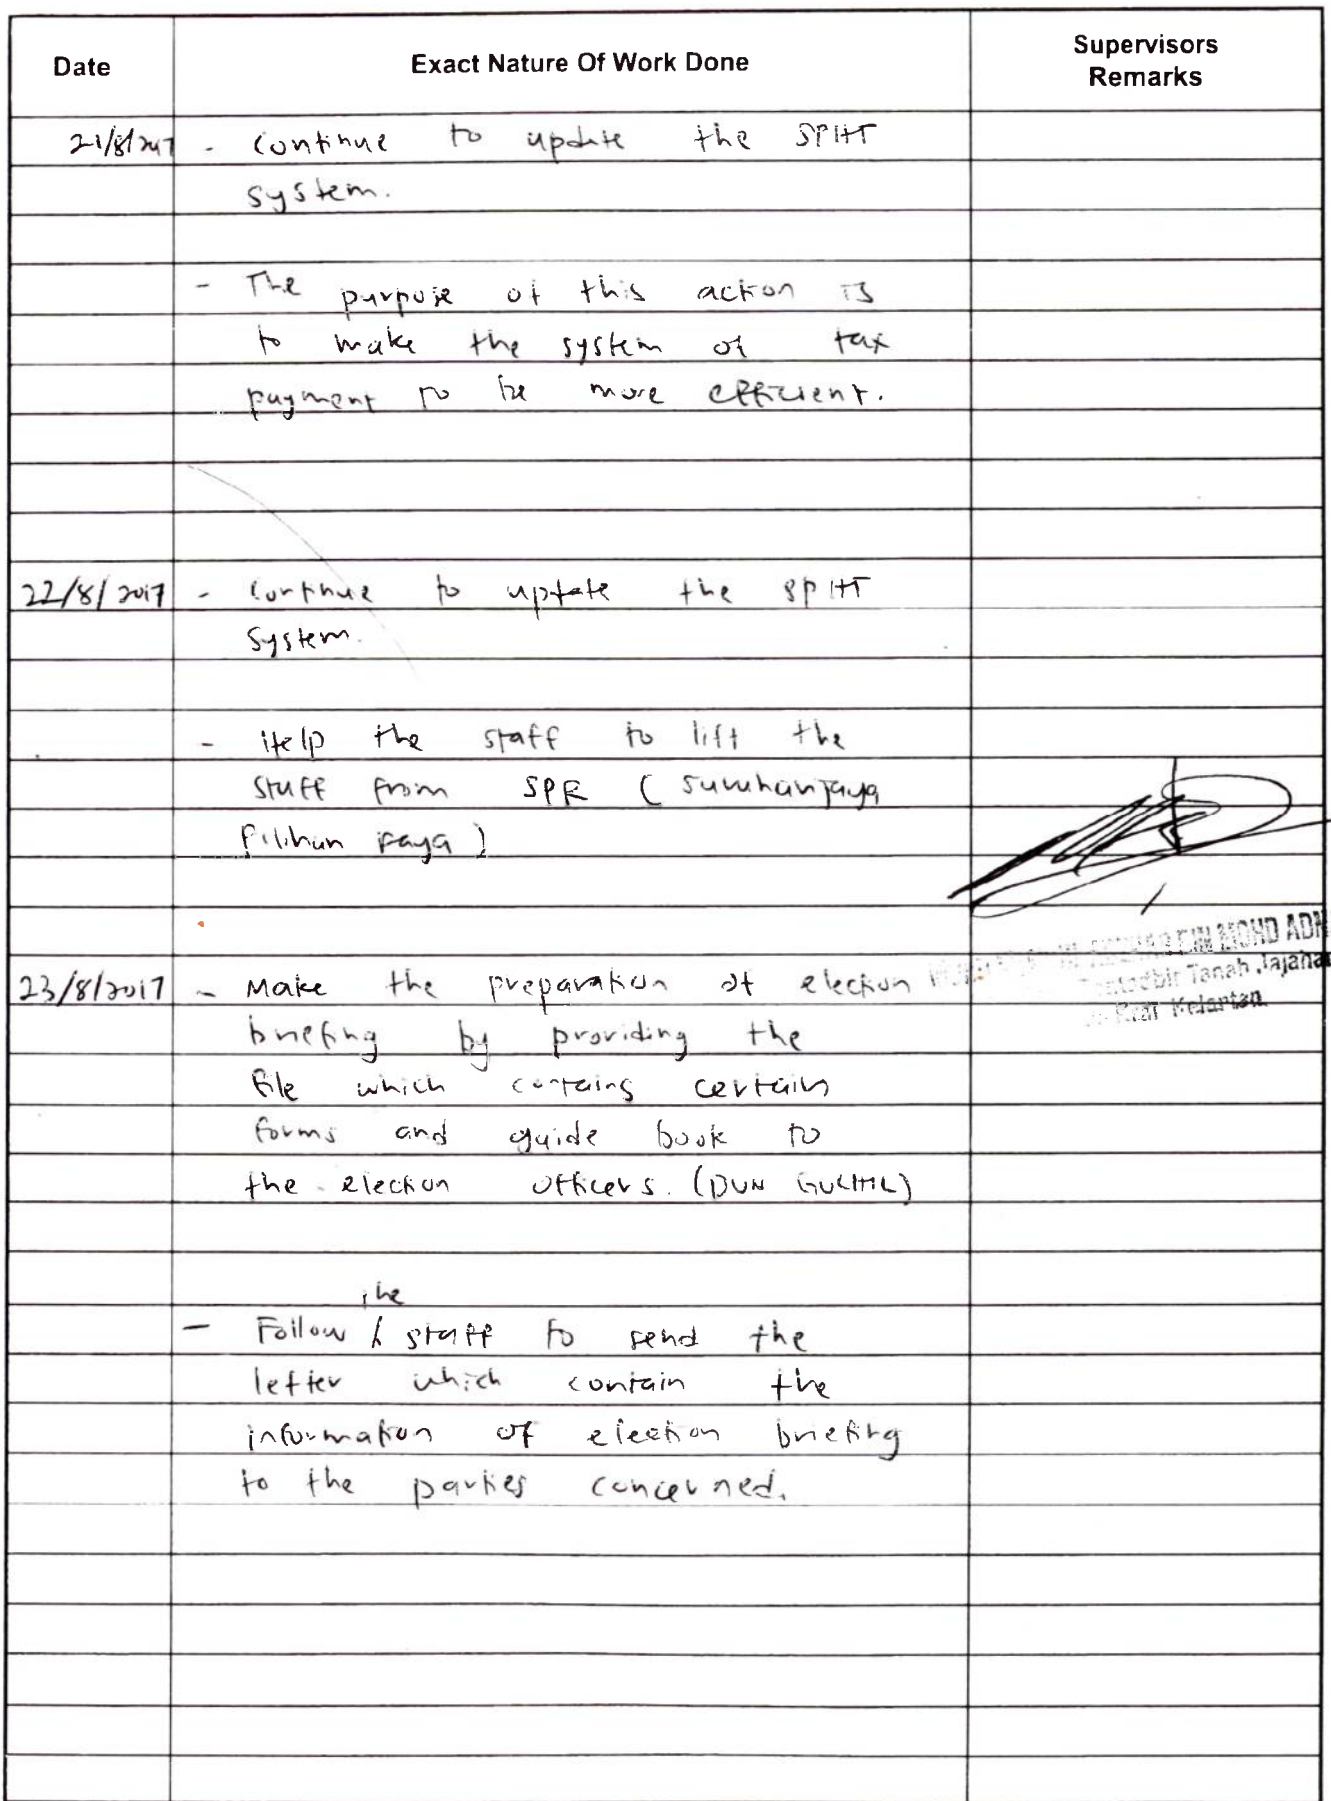 Date Exact Nature Of Work Done Supervisors Remarks
21/8/2017 - Continue to update the SPHT
system.
- The purpose of this action is
to make the system of tax
payment to be more efficient.
22/8/2017 - Continue to uptate the SPHT
System.
- Help the staff to lift the
stuff from SPR ( Suruhanjaya
Pilihan Raya )
MOHD ADN
Tanah Jajahan
23/8/2017 - Make the preparation of election
Kelantan
briefing by providing the
file which contains certain
forms and guide book to
the election officers. (DUN
the
- Follow staff to send the
letter which contain the
information of election briefing
to the parties concerned.